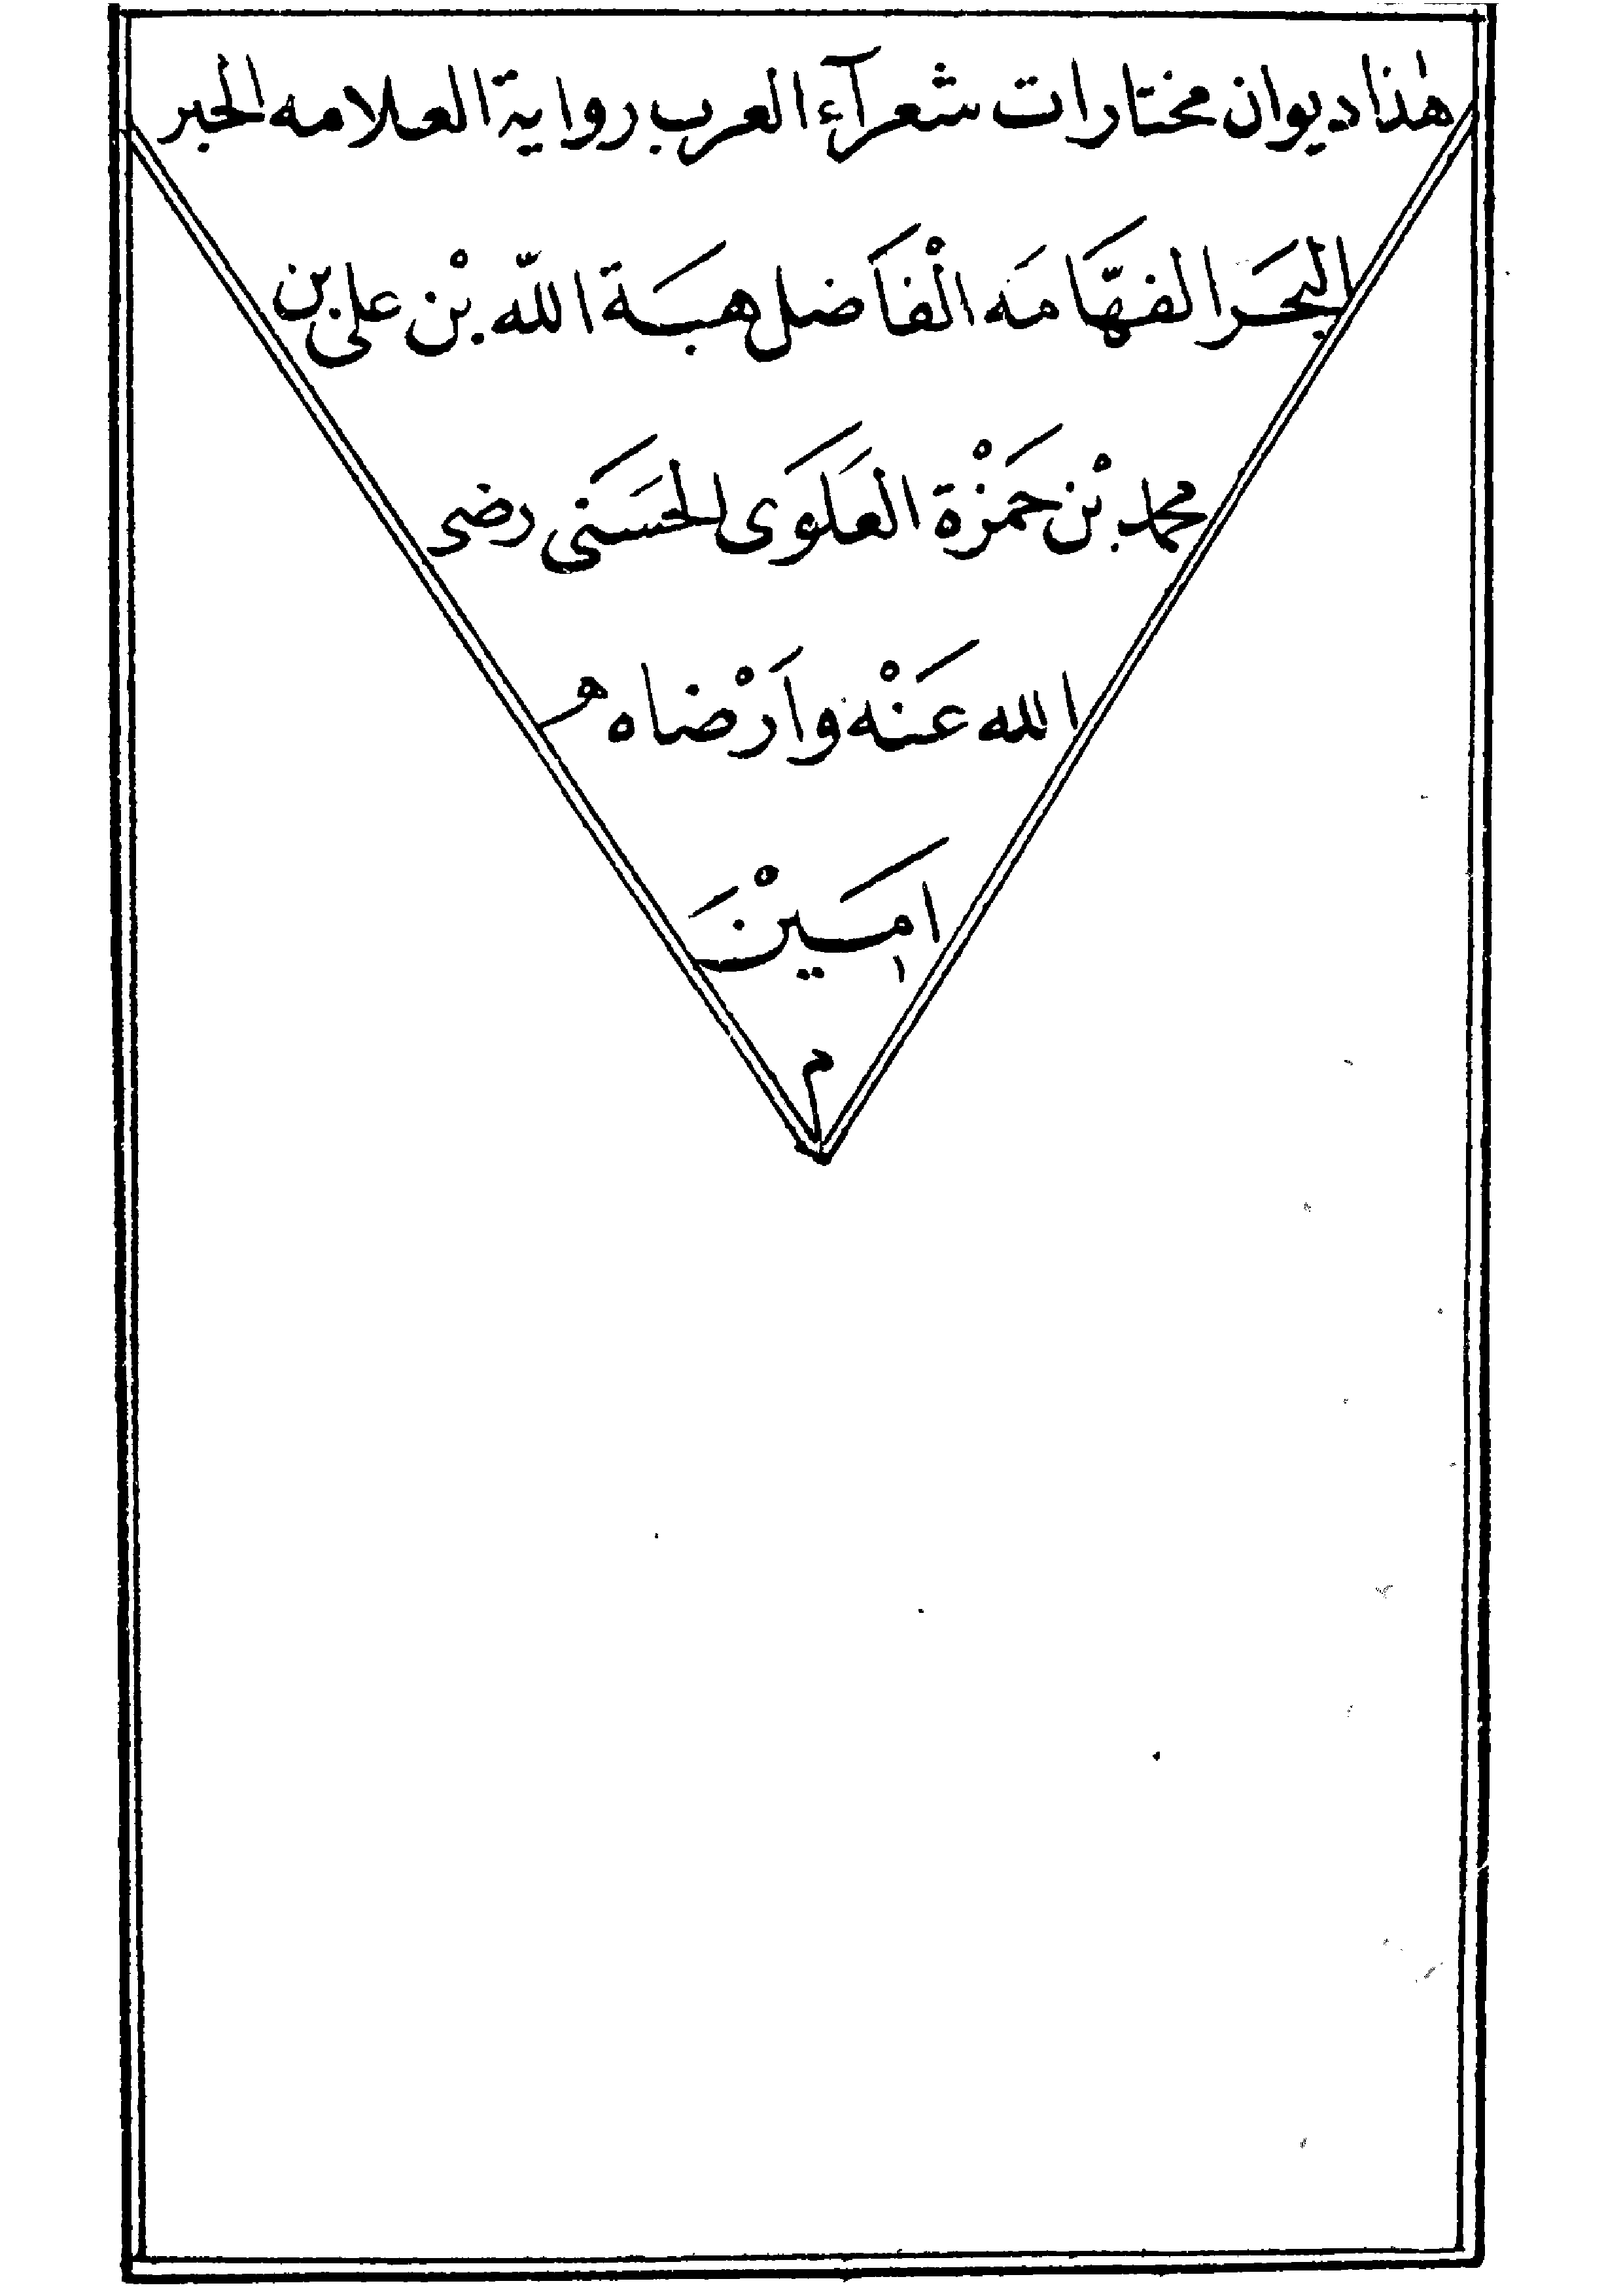 هٰذا ديوان مختارات شعرآء العرب رواية العلامه الحبر
البحَر الفهّامَه الْفاَضل هبَة اللّه بْن على بن
محمد بْن حَمزْة العَلَوَى الحَسَنَى رضى
الله عَنْه واَرْضاه هـ
امَينْ
م